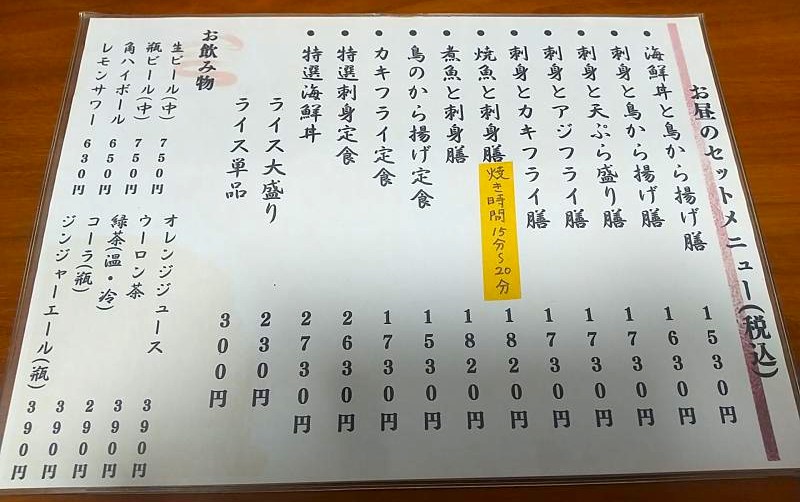 お昼のセットメニュー(税込)
• 海鮮丼と鳥から揚げ膳 1530円
• 刺身と鳥から揚げ膳 1630円
• 刺身と天ぷら盛り膳 1730円
• 刺身とアジフライ膳 1730円
• 刺身とカキフライ膳 1730円
• 焼魚と刺身膳 焼き時間15分〜20分 1820円
• 煮魚と刺身膳 1820円
• 鳥のから揚げ定食 1530円
• カキフライ定食 1730円
• 特選刺身定食 2630円
• 特選海鮮丼 2730円
ライス大盛り 230円
ライス単品 300円
お飲み物
生ビール(中) 750円
瓶ビール(中) 750円
角ハイボール 650円
レモンサワー 630円
オレンジジュース 390円
ウーロン茶 390円
緑茶(温・冷) 290円
コーラ(瓶) 390円
ジンジャーエール(瓶) 390円